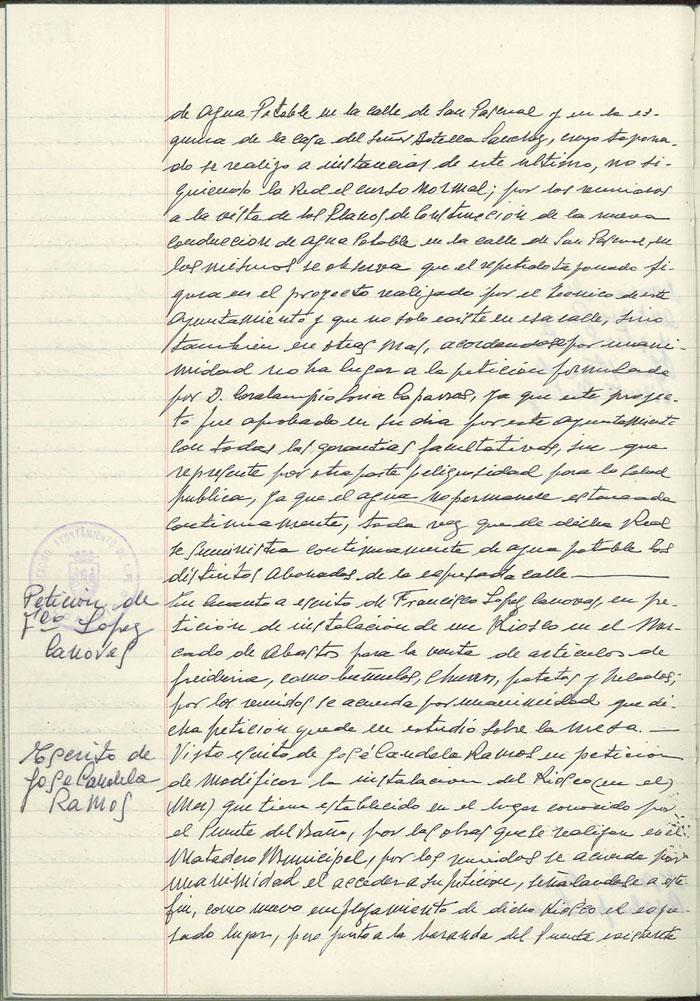 de agua Potable en la calle de San Pascual y en la es-
quina de la casa del Señor Botella Sanchez, cuyo tapona-
do se realizo a instancias de este ultimo, no si-
guiendo la Red el curso normal; por los reunidos
a la vista de los Planos de Construccion de la nueva
conduccion de agua Potable en la calle de San Pascual, en
los mismos se observa que el repetido taponado fi-
gura en el proyecto realizado por el Tecnico de este
Ayuntamiento y que no solo existe en esa calle, sino
tambien en otras mas, acordandose por unani-
midad no ha lugar a la peticion formulada
por D. Caralampio Soria Caparros, ya que este proyec-
to fue aprobado en su dia por este Ayuntamiento
con todas las garantias facultativas, sin que
represente por otra parte peligrosidad para la salud
publica, ya que el agua no permanece estancada
continuamente, toda vez que de dicha Red
se suministra continuamente de agua potable los
distintos Abonados de la expresada calle
AYUNTAMIENTO DE
Peticion de
Fco Lopez
Canovas
En cuanto a escrito de Francisco Lopez Canovas, en pe-
ticion de instalacion de un Kiosco en el Mer-
cado de Abastos para la venta de articulos de
freiduria, como buñuelos, churros, patatas y helados;
por los reunidos se acuerda por unanimidad que di-
cha peticion quede en estudio sobre la mesa.
Escrito de
Jose Candela
Ramos
Visto escrito de José Candela Ramos en peticion
de Modificar la instalacion del Kiosco (en el)
(Mer) que tiene establecido en el lugar conocido por
el Puente del Baño, por las obras que se realizan en el
Matadero Municipal, por los reunidos se acuerda por
unanimidad el acceder a su peticion, señalandose a este
fin, como nuevo emplazamiento de dicho Kiosco el expre-
sado lugar, pero junto a la baranda del Puente existente